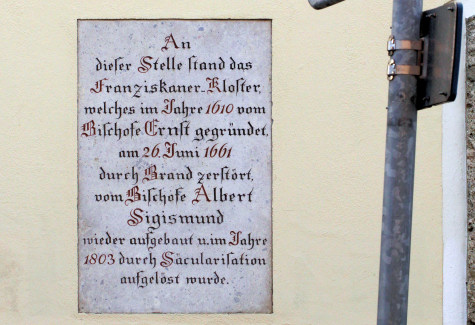 An
dieser Stelle stand das
Franziskaner-Kloster,
welches im Jahre 1610 vom
Bischofe Ernst gegründet,
am 26. Juni 1661
durch Brand zerstört,
vom Bischofe Albert
Sigismund
wieder aufgebaut u. im Jahre
1803 durch Säcularisation
aufgelöst wurde.